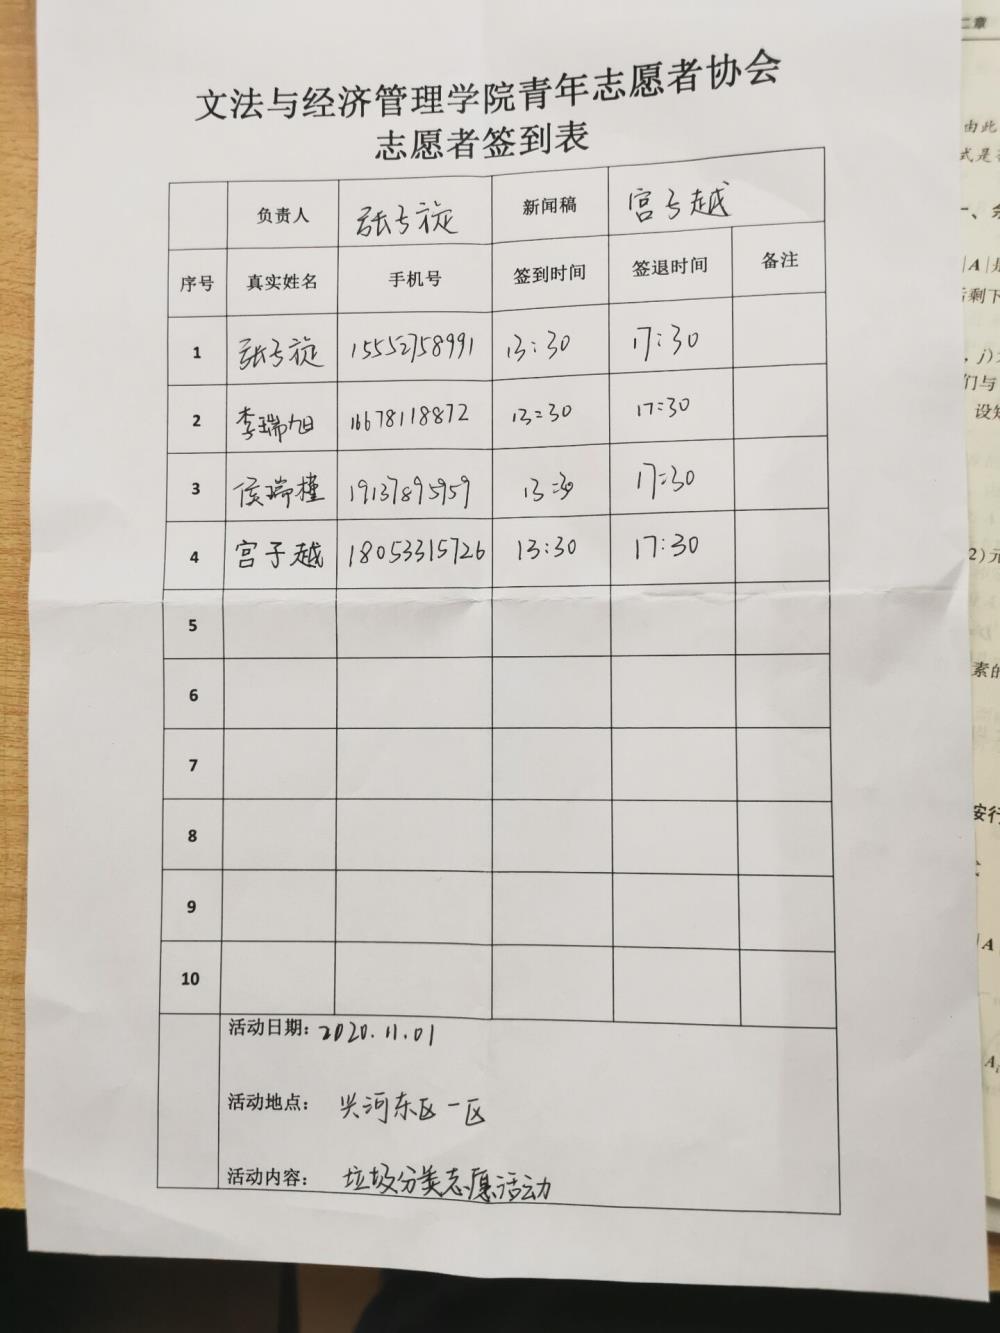 文法与经济管理学院青年志愿者协会
志愿者签到表
负责人 张子旋 新闻稿 宫子越
序号 真实姓名 手机号 签到时间 签退时间 备注
1 张子旋 15552758991 13:30 17:30
2 李瑞旭 16678118872 13:30 17:30
3 侯瑞槿 19137895959 13:30 17:30
4 宫子越 18053315726 13:30 17:30
5
6
7
8
9
10
活动日期: 2020.11.01
活动地点: 兴河东区一区
活动内容: 垃圾分类志愿活动
二章
由此
式是
一、
|A|是
后剩下
, j)
们与
设
2)元
素的
按行
A